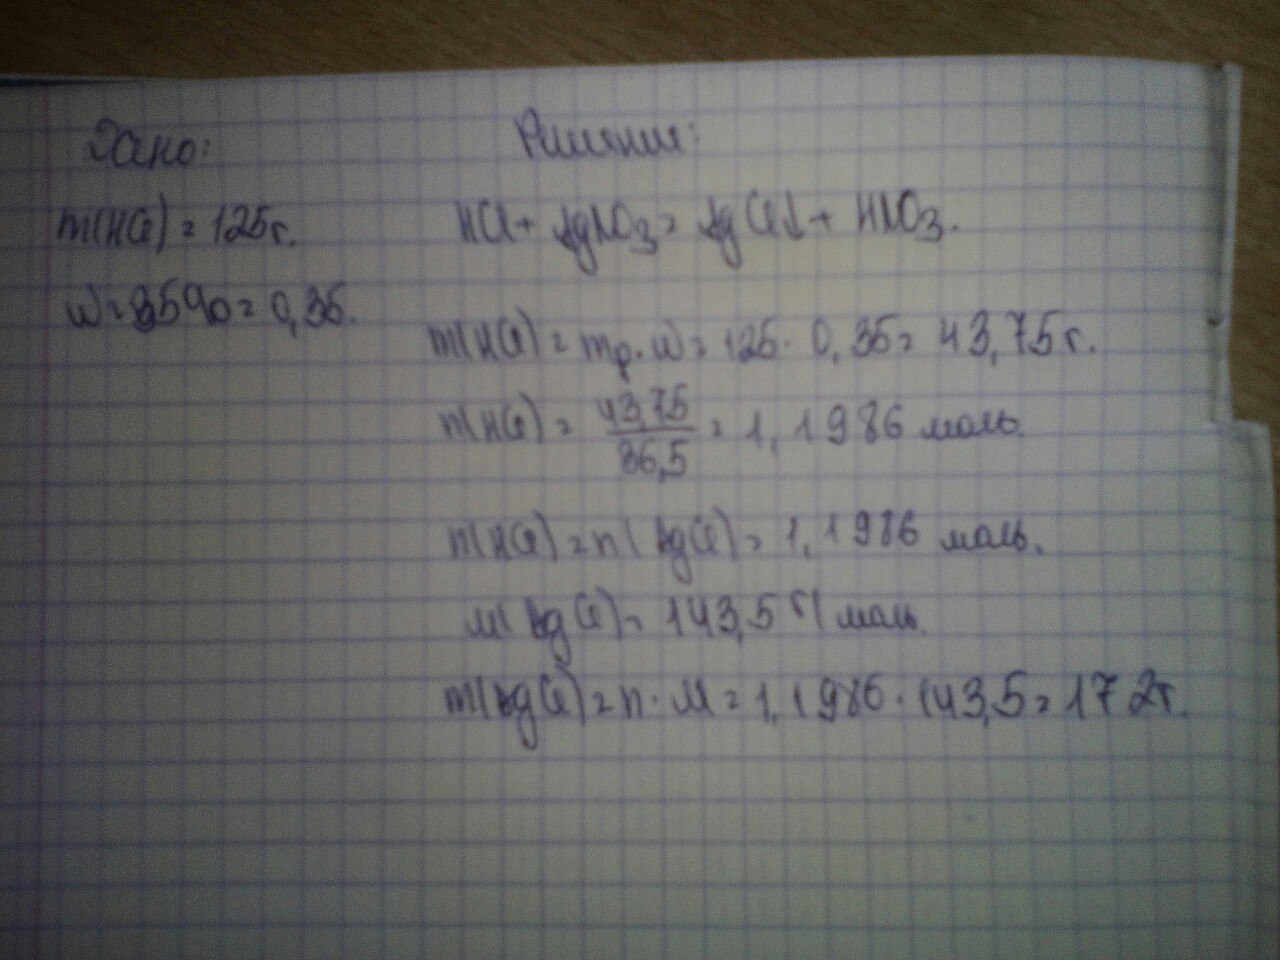 Дано:
Решение:
m(HCl) = 125г.
HCl + AgNO3 = AgCl↓ + HNO3.
W = 35% = 0,35.
m(HCl) = mр · W = 125 · 0,35 = 43,75 г.
n(HCl) = 43,75/36,5 = 1,1986 моль.
n(HCl) = n(AgCl) = 1,1986 моль.
M(AgCl) = 143,5 г/моль.
m(AgCl) = n · M = 1,1986 · 143,5 = 172г.